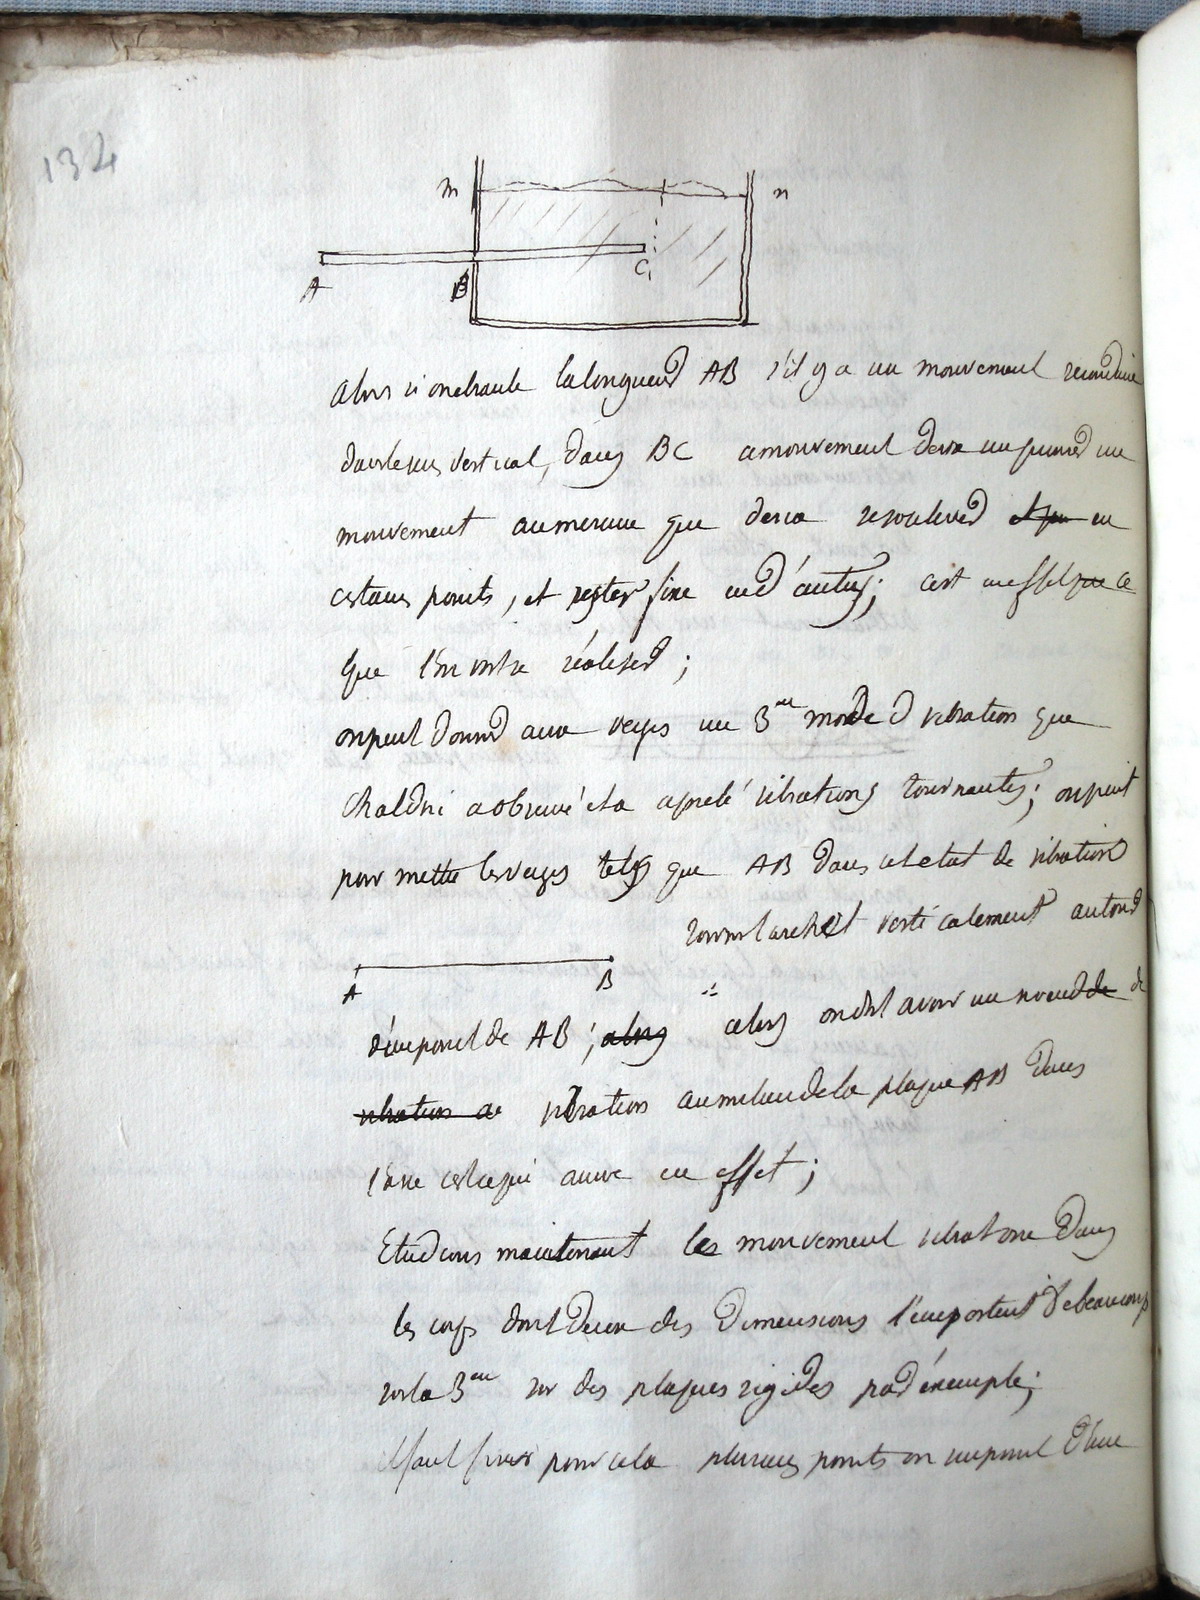 132
m n
A B C
alors si onebranle lalongueur AB s'il y a un mouvement secondaire
dans le sens vertical, dans BC ce mouvement devra imprimer un
mouvement au mercure que devra se soulever en
certains points, et rester fixe en d'autres; c'est en effet ce
que l'on voit se réaliser;
on peut donner aux verges un 3me mode d vibration que
Chaldni a observé et a appelé vibrations tournantes; on peut
pour mettre les verges tels que AB dans cet etat de vibration
l'archet verticalement autour
A B
d'un point de AB; alors alors on doit avoir un noeud de de
vibration de vibration au milieu de la plaque AB dans
l'axe c'est ce qui arrive en effet;
Etudions maintenant les mouvement vibratoire dans
les corps dont deux des dimensions l'emportent de beaucoup
sur la 3me sur des plaques rigides par éxemple;
Il faut fixer pour cela plusieurs points on un point d'une